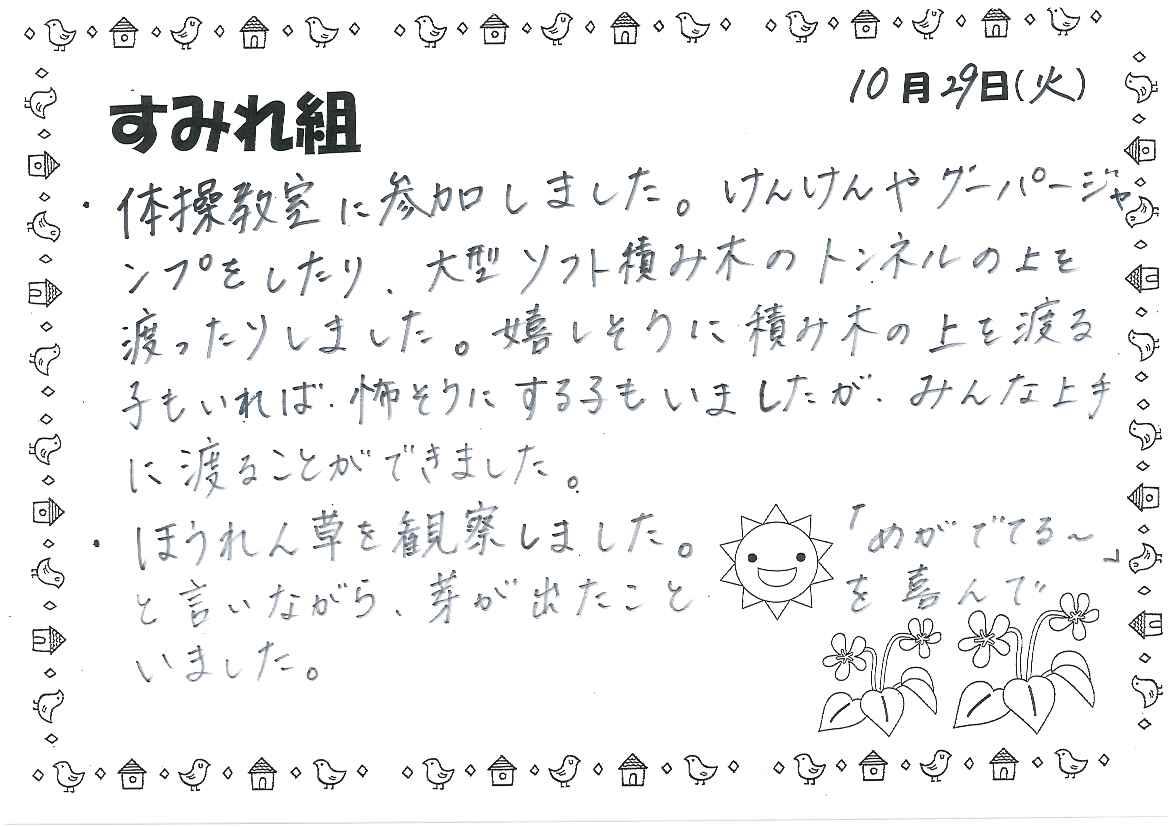 10月29日(火)
すみれ組
・体操教室に参加しました。けんけんやグーパージャ
ンプをしたり、大型ソフト積み木のトンネルの上を
渡ったりしました。嬉しそうに積み木の上を渡る
子もいれば、怖そうにする子もいましたが、みんな上手
に渡ることができました。
・ほうれん草を観察しました。「めがでてる～」
と言いながら、芽が出たことを喜んで
いました。